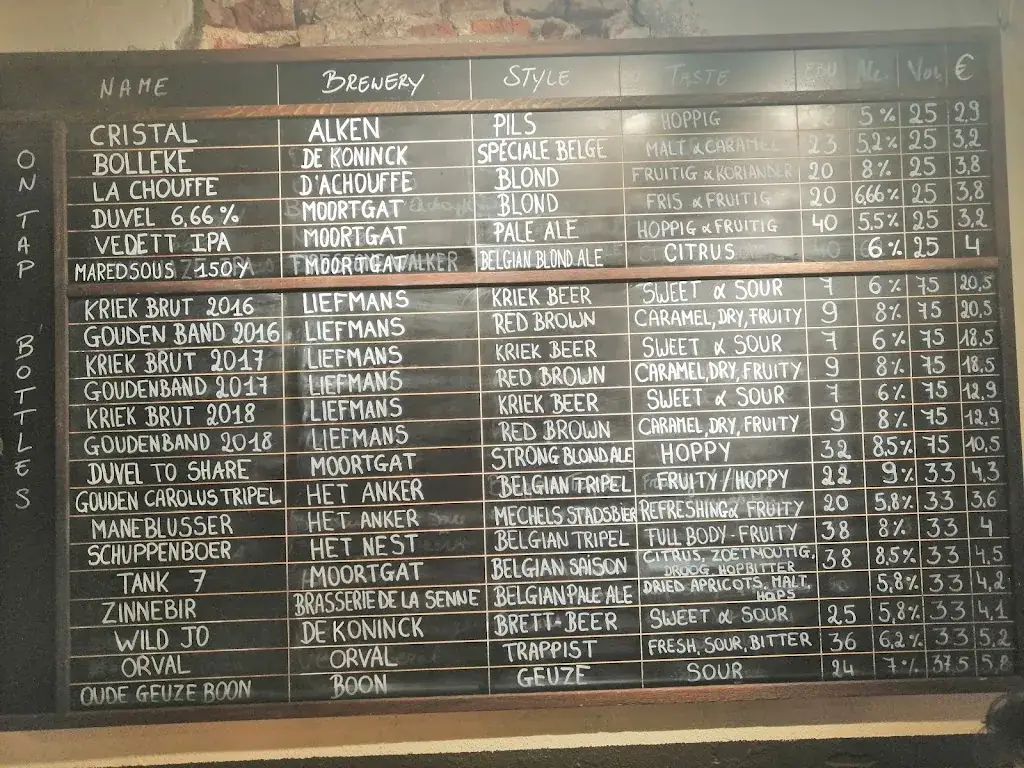 NAME BREWERY STYLE TASTE EBU Alc. Vol €
ON TAP
CRISTAL ALKEN PILS HOPPIG 5% 25 2,9
BOLLEKE DE KONINCK SPÉCIALE BELGE MALT & CARAMEL 23 5,2% 25 3,2
LA CHOUFFE D'ACHOUFFE BLOND FRUITIG & KORIANDER 20 8% 25 3,8
DUVEL 6,66% MOORTGAT BLOND FRIS & FRUITIG 20 6,66% 25 3,8
VEDETT IPA MOORTGAT PALE ALE HOPPIG & FRUITIG 40 5,5% 25 3,2
MAREDSOUS 150Y MOORTGAT BELGIAN BLOND ALE CITRUS 6% 25 4
BOTTLES
KRIEK BRUT 2016 LIEFMANS KRIEK BEER SWEET & SOUR 7 6% 75 20,5
GOUDEN BAND 2016 LIEFMANS RED BROWN CARAMEL, DRY, FRUITY 9 8% 75 20,5
KRIEK BRUT 2017 LIEFMANS KRIEK BEER SWEET & SOUR 7 6% 75 18,5
GOUDENBAND 2017 LIEFMANS RED BROWN CARAMEL, DRY, FRUITY 9 8% 75 18,5
KRIEK BRUT 2018 LIEFMANS KRIEK BEER SWEET & SOUR 7 6% 75 12,9
GOUDENBAND 2018 LIEFMANS RED BROWN CARAMEL, DRY, FRUITY 9 8% 75 12,9
DUVEL TO SHARE MOORTGAT STRONG BLOND ALE HOPPY 32 8,5% 75 10,5
GOUDEN CAROLUS TRIPEL HET ANKER BELGIAN TRIPEL FRUITY/HOPPY 22 9% 33 4,3
MANEBLUSSER HET ANKER MECHELS STADSBIER REFRESHING & FRUITY 20 5,8% 33 3,6
SCHUPPENBOER HET NEST BELGIAN TRIPEL FULL BODY-FRUITY 38 8% 33 4
TANK 7 MOORTGAT BELGIAN SAISON CITRUS, ZOETMOUTIG, DROOG, HOPBITTER 38 8,5% 33 4,5
ZINNEBIR BRASSERIE DE LA SENNE BELGIAN PALE ALE DRIED APRICOTS, MALT, HOPS 5,8% 33 4,2
WILD JO DE KONINCK BRETT-BEER SWEET & SOUR 25 5,8% 33 4,1
ORVAL ORVAL TRAPPIST FRESH, SOUR, BITTER 36 6,2% 33 5,2
OUDE GEUZE BOON BOON GEUZE SOUR 24 7% 37,5 5,8